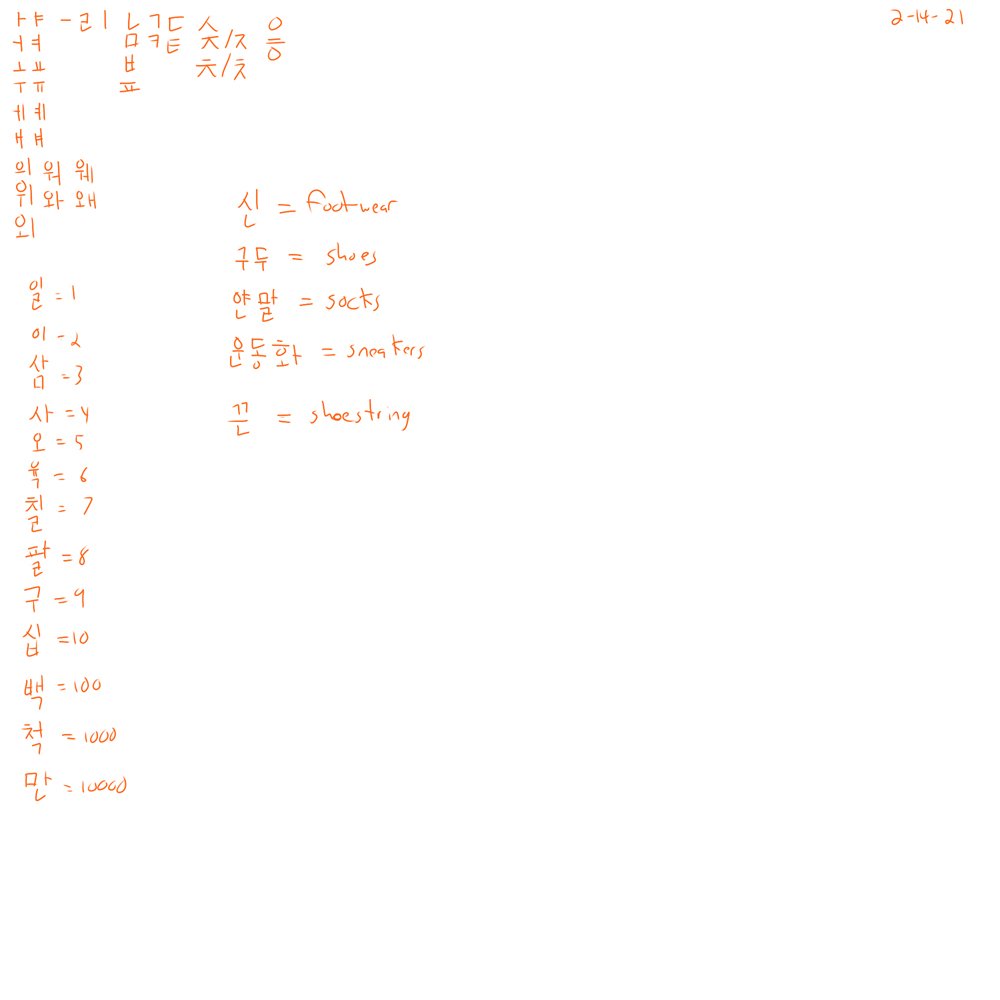 2-14-21
ㅏㅑ ㅡ ㄹ ㅣ ㄴ ㄱ ㄷ ㅅ ㅇ
ㅓㅕ ㅁ ㅋ ㅌ ㅈ/ㅈ ㅡ
ㅗㅛ ㅂ ㅊ/ㅊ ㅇ
ㅜㅠ ㅍ
ㅔㅖ
ㅐㅒ
의 워 웨
위 와 왜
외
신 = footwear
구두 = shoes
얀말 = socks
운동화 = sneakers
끈 = shoestring
일 = 1
이 - 2
삼 = 3
사 = 4
오 = 5
육 = 6
칠 = 7
팔 = 8
구 = 9
십 = 10
백 = 100
척 = 1000
만 = 10000